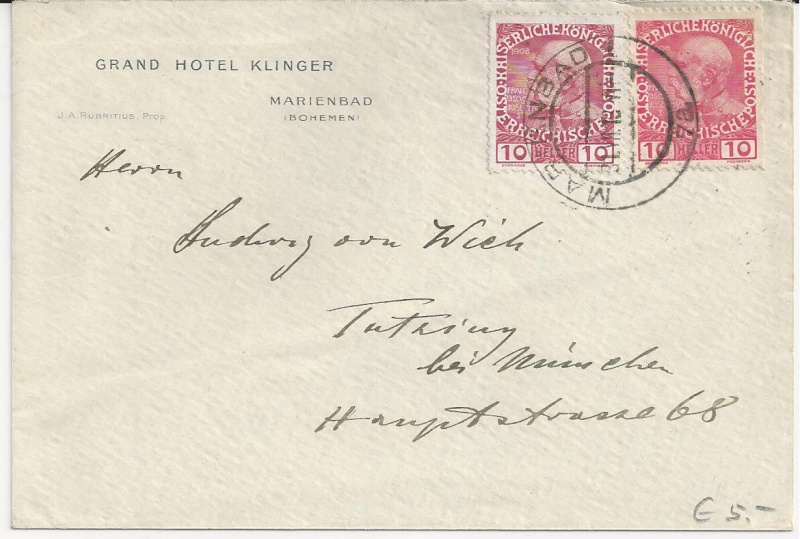 GRAND HOTEL KLINGER
MARIENBAD
(BOHEMEN)
J. A. RUBRITIUS, Prop.
KAISERLICHE KÖNIGLICHE ÖSTERREICHISCHE POST
1908
10 HELLER 10
KAISERLICHE KÖNIGLICHE ÖSTERREICHISCHE POST
10 10
MARIENBAD
Herrn
Ludwig von Wich
Tutzing
bei München
Hauptstrasse 68
€ 5.-